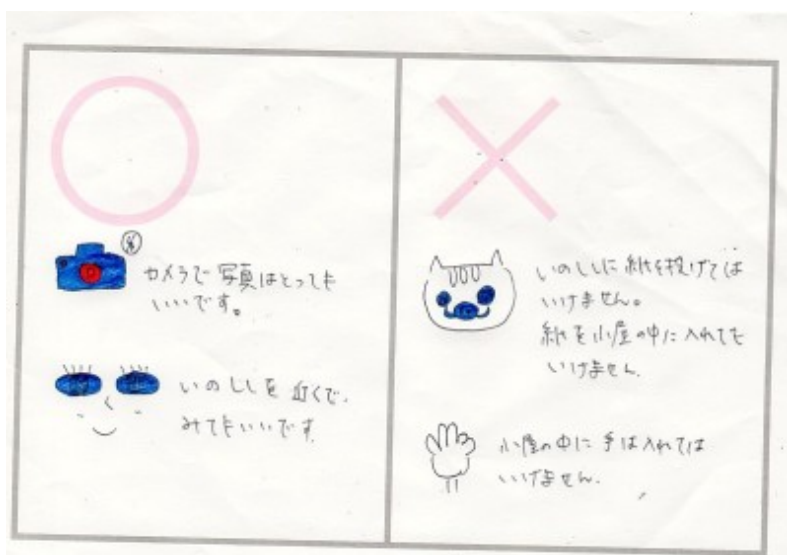 カメラで写真はとっても
いいです。
いのししを近くで、
みてもいいです
いのししに紙を投げては
いけません。
紙を小屋の中に入れても
いけません.
小屋の中に手は入れては
いけません.